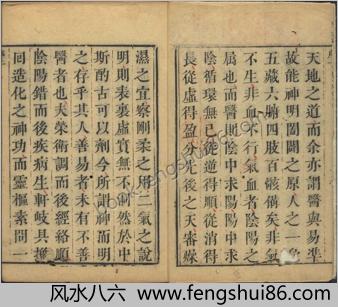 天地之道而余亦謂醫與易準
故能神明闔闢之原人之一
五藏六腑四肢百骸備矣非氣
不生非血不行氣血者陰陽之
屬也而醫則陰中求陽陽中求
陰循環無已從逆得順從消得
長從虛得盈分先後之天審燥
濕之宜察剛柔之用二氣之說
明則表裏虛實無不瞭然於中
斯酌古可以劑今所謂神而明
之存乎其人善易者未有不善
醫者也夫榮衛調而後經絡順
陰陽錯而後疾病生軒岐具
同造化之神功而靈樞素問一
风水八六 www.fengshui86.com